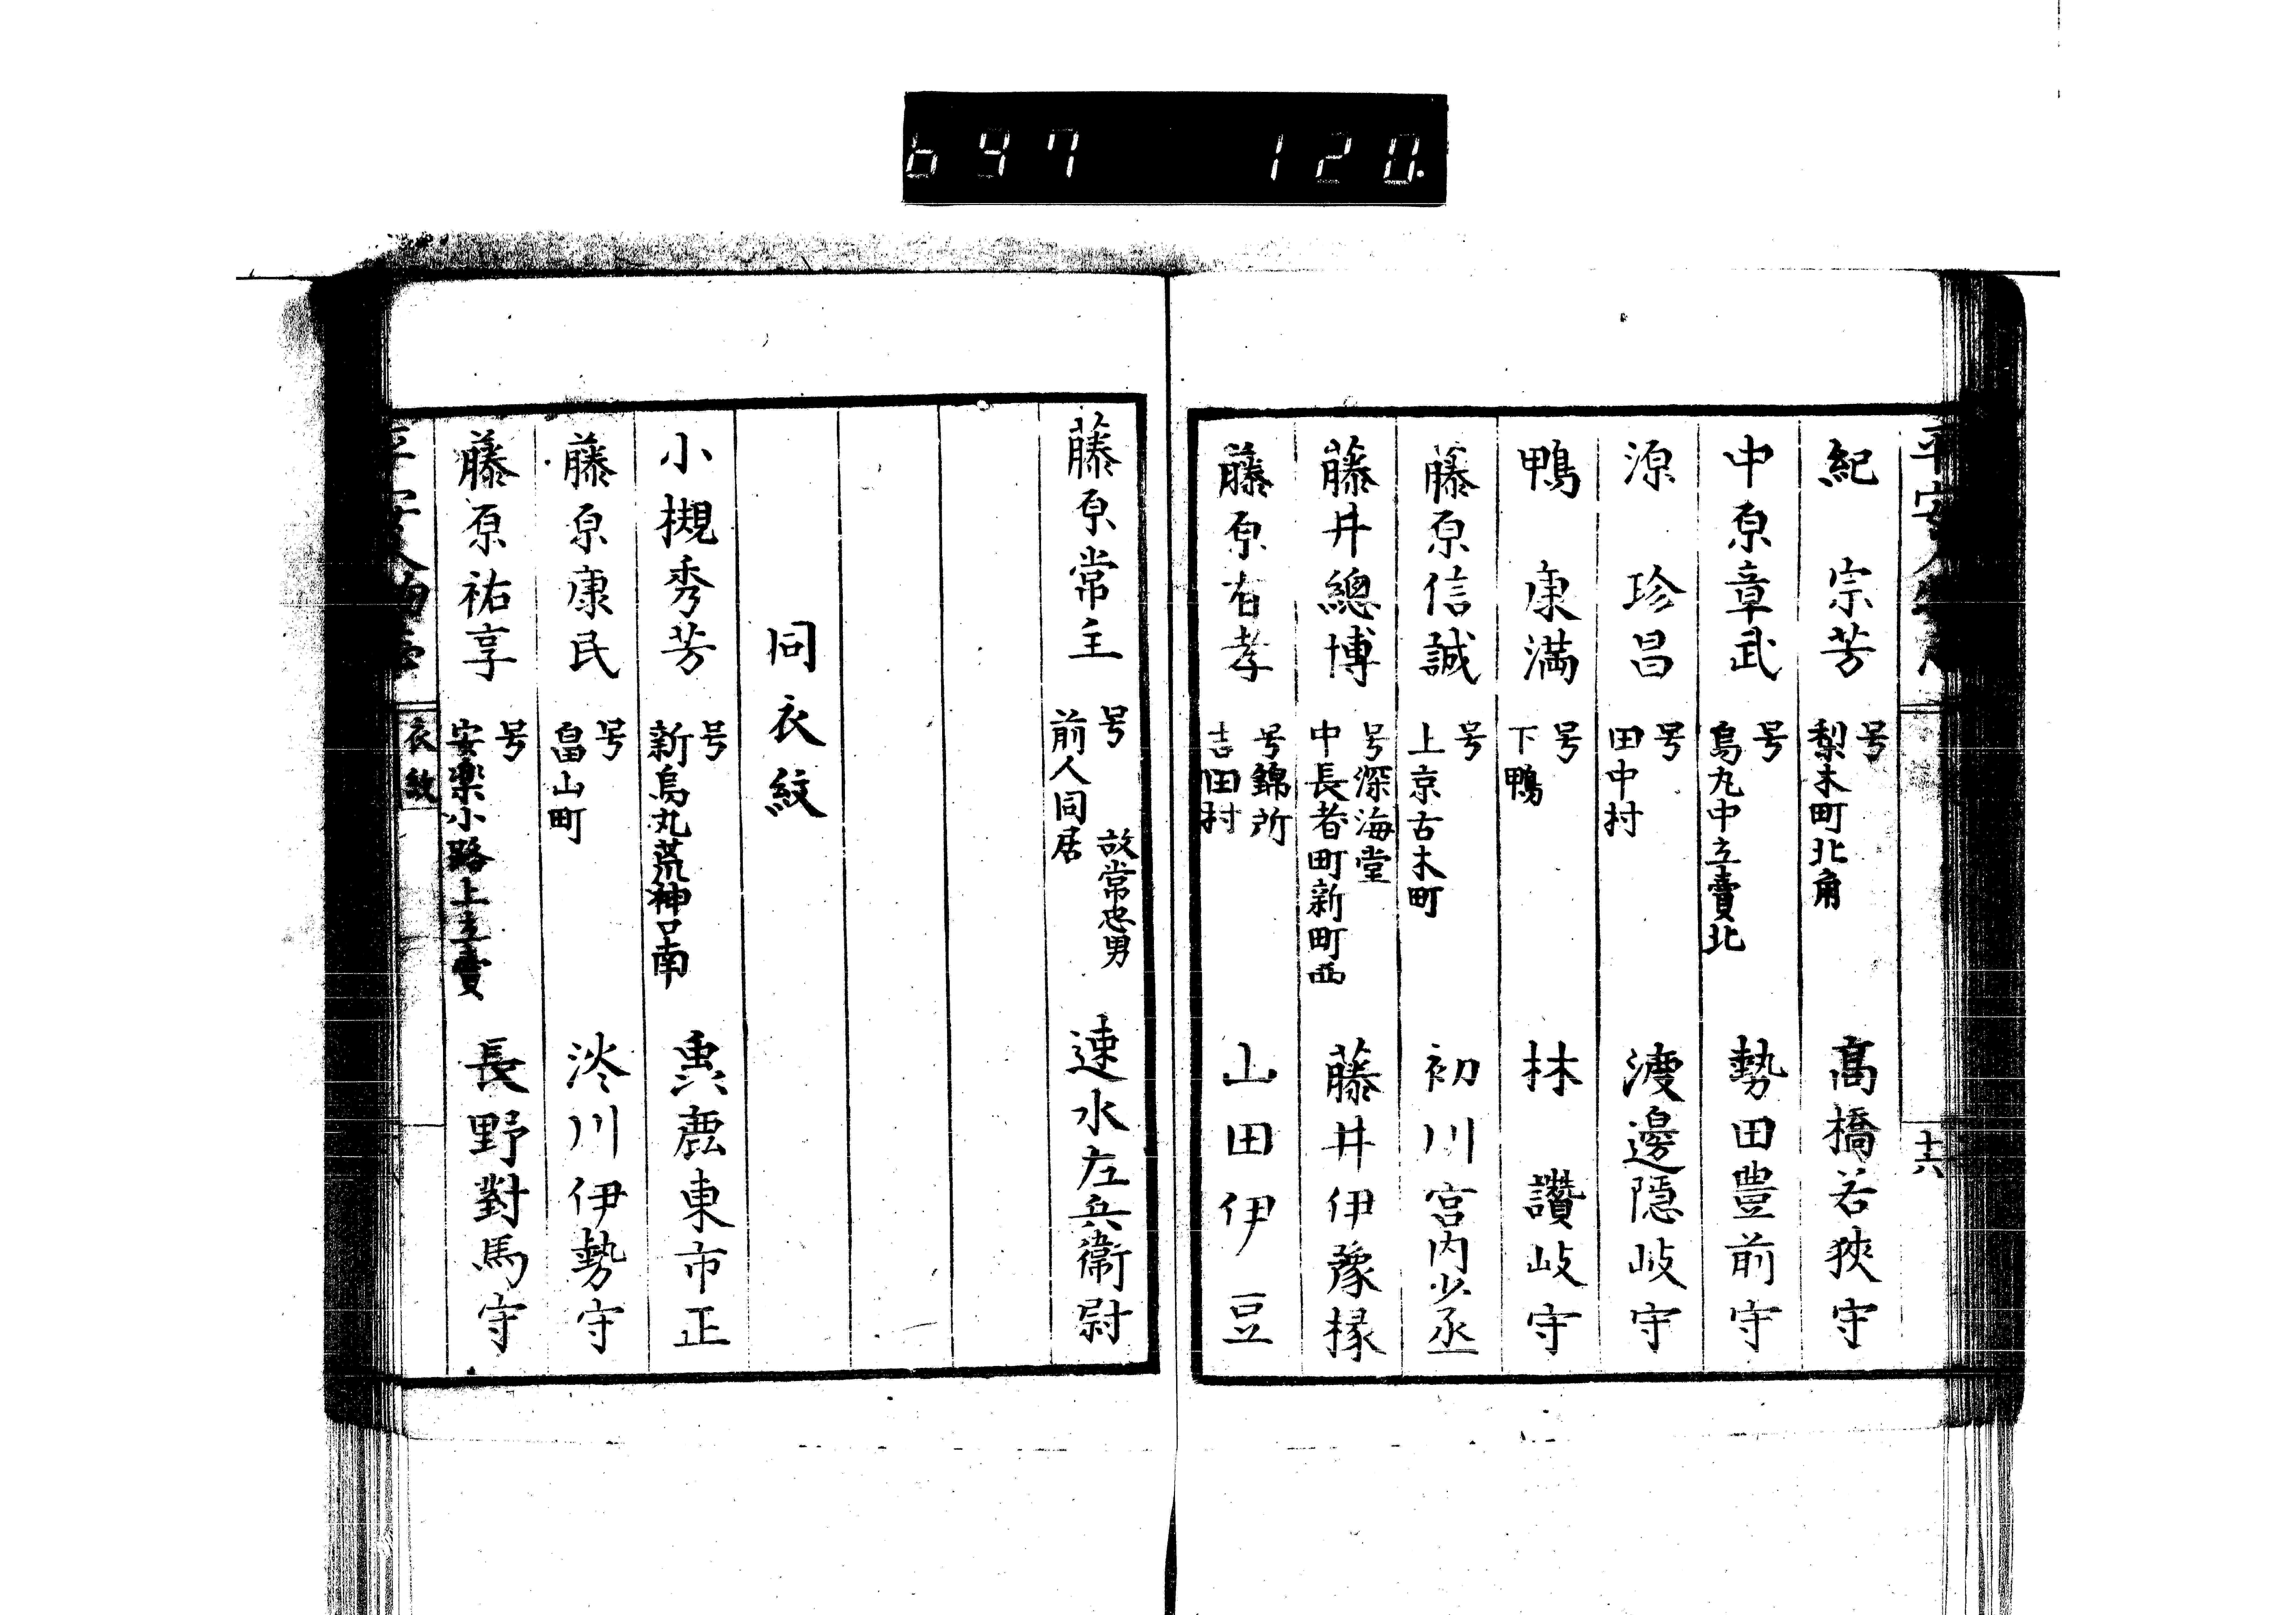 697 120.
十六
紀 宗芳 号 梨木町北角 高橋若狹守
中原章武 号 烏丸中立賣北 勢田豊前守
源 珍昌 号 田中村 渡邊隠岐守
鴨 康満 号 下鴨 林 讚岐守
藤原信誠 号 上京古木町 初川宮内少丞
藤井總博 号深海堂 中長者町新町西 藤井伊豫掾
藤原有孝 号錦所 吉田村 山田伊豆
藤原常主 号 故常忠男 前人同居 速水左兵衛尉
同衣紋
小槻秀芳 号 新烏丸荒神口南 鹿東市正
藤原康民 号 畠山町 川伊勢守
藤原祐享 号 安楽小路上立賣 長野對馬守
衣紋